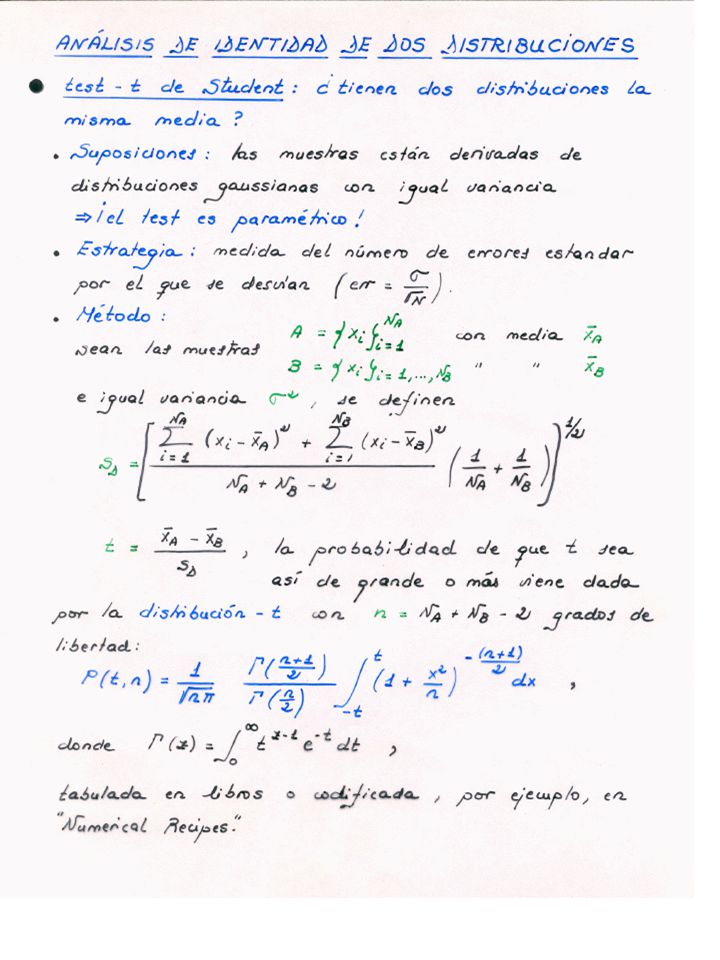 ANÁLISIS DE IDENTIDAD DE DOS DISTRIBUCIONES
• test-t de Student: ¿tienen dos distribuciones la
misma media?
• Suposiciones: las muestras están derivadas de
distribuciones gaussianas con igual variancia
⇒ ¡el test es paramétrico!
• Estrategia: medida del número de errores estandar
por el que se desvían (err = σ/√N).
• Método:
sean las muestras A = {xi}_{i=1}^{N_A} con media x̄_A
B = {xi}_{i=1,...,N_B} " " x̄_B
e igual variancia σ², se definen
s_D = [ (∑_{i=1}^{N_A} (xi - x̄_A)² + ∑_{i=1}^{N_B} (xi - x̄_B)²) / (N_A + N_B - 2) (1/N_A + 1/N_B) ]^{1/2}
t = (x̄_A - x̄_B)/s_D, la probabilidad de que t sea
así de grande o más viene dada
por la distribución-t con n = N_A + N_B - 2 grados de
libertad:
P(t,n) = 1/√(nπ) Γ((n+1)/2)/Γ(n/2) ∫_{-t}^{t} (1 + x²/n)^{-(n+1)/2} dx ,
donde Γ(z) = ∫_0^∞ t^{z-1} e^{-t} dt ,
tabulada en libros o codificada, por ejemplo, en
"Numerical Recipes."